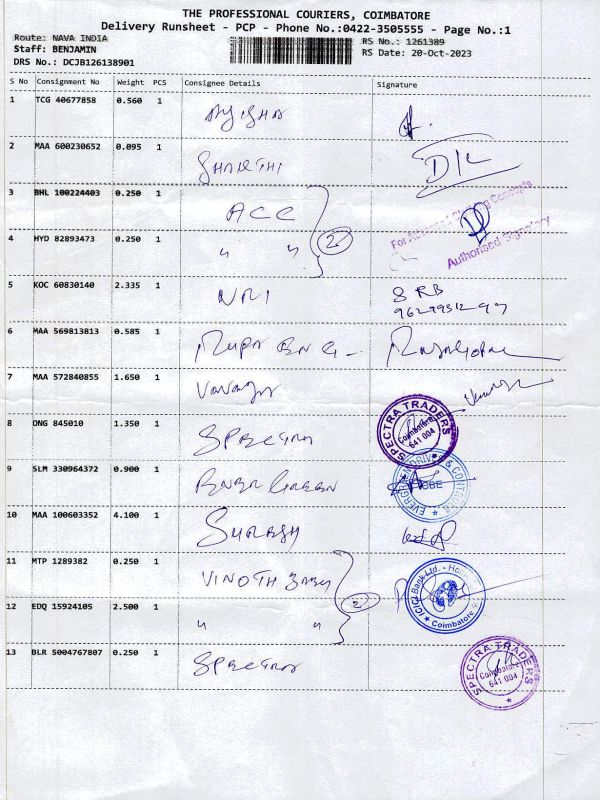 THE PROFESSIONAL COURIERS, COIMBATORE
Delivery Runsheet - PCP - Phone No.:0422-3505555 - Page No.:1
Route: NAVA INDIA RS No.: 1261389
Staff: BENJAMIN RS Date: 20-Oct-2023
DRS No.: DCJB126138901
S No Consignment No Weight PCS Consignee Details Signature
1 TCG 40677858 0.560 1
2 MAA 600230652 0.095 1
3 BHL 100224403 0.250 1 ACC
For Concepts
4 HYD 82893473 0.250 1 " " 2
Authorised Signatory
5 KOC 60830140 2.335 1 NRI
6 MAA 569813813 0.585 1
7 MAA 572840855 1.650 1
8 DNG 845010 1.350 1 SPECTRA
SPECTRA TRADERS
Coimbatore
641 004
9 SLM 330964372 0.900 1
CBE
10 MAA 100603352 4.100 1 SURESH
11 MTP 1289382 0.250 1 VINOTH BABU
ICICI Bank Ltd.
Coimbatore
12 EDQ 15924105 2.500 1 " " 2
13 BLR 5004767807 0.250 1 SPECTRA
SPECTRA TRADERS
Coimbatore
641 004